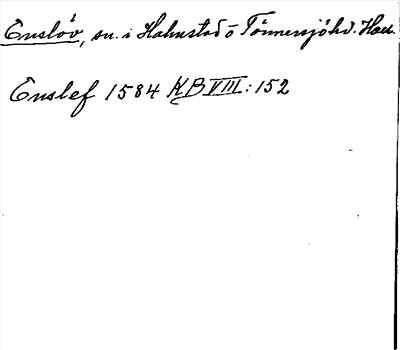 Enslöv, sn. i Halmstad o Tönnersjö hd. Hall.
Enslef 1584 KB VIII: 152